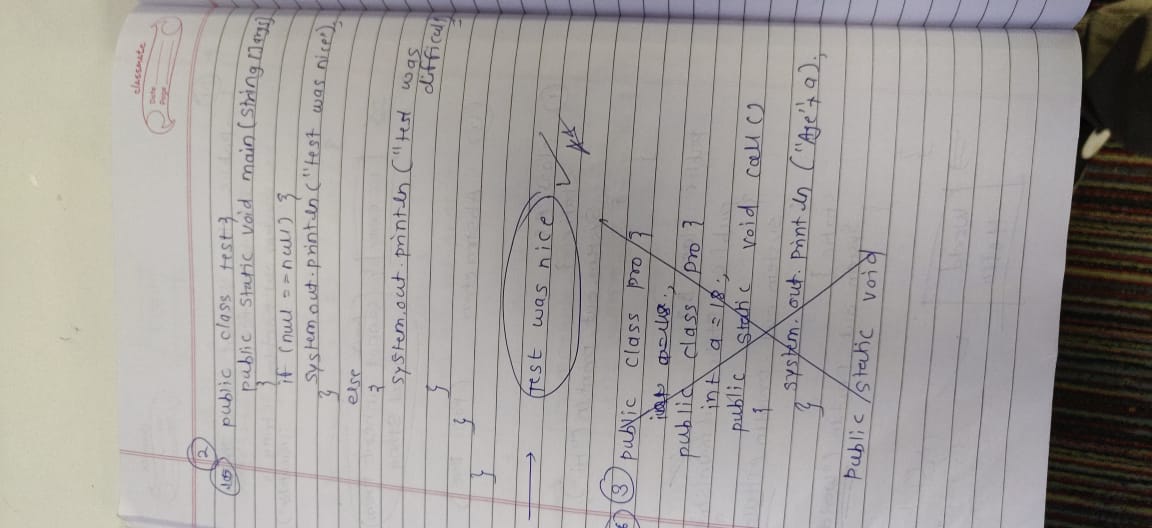 classmate
Date
Page
2
public class test {
public static void main (String [] args)
{
if (null == null) {
system.out.println ("test was nice");
}
else
{
system.out.println ("test was
difficult
}
}
}
→ Test was nice
3 public class pro {
public class pro {
int a = 18;
public static void call ()
{
system.out.println ("Age" + a);
}
public static void